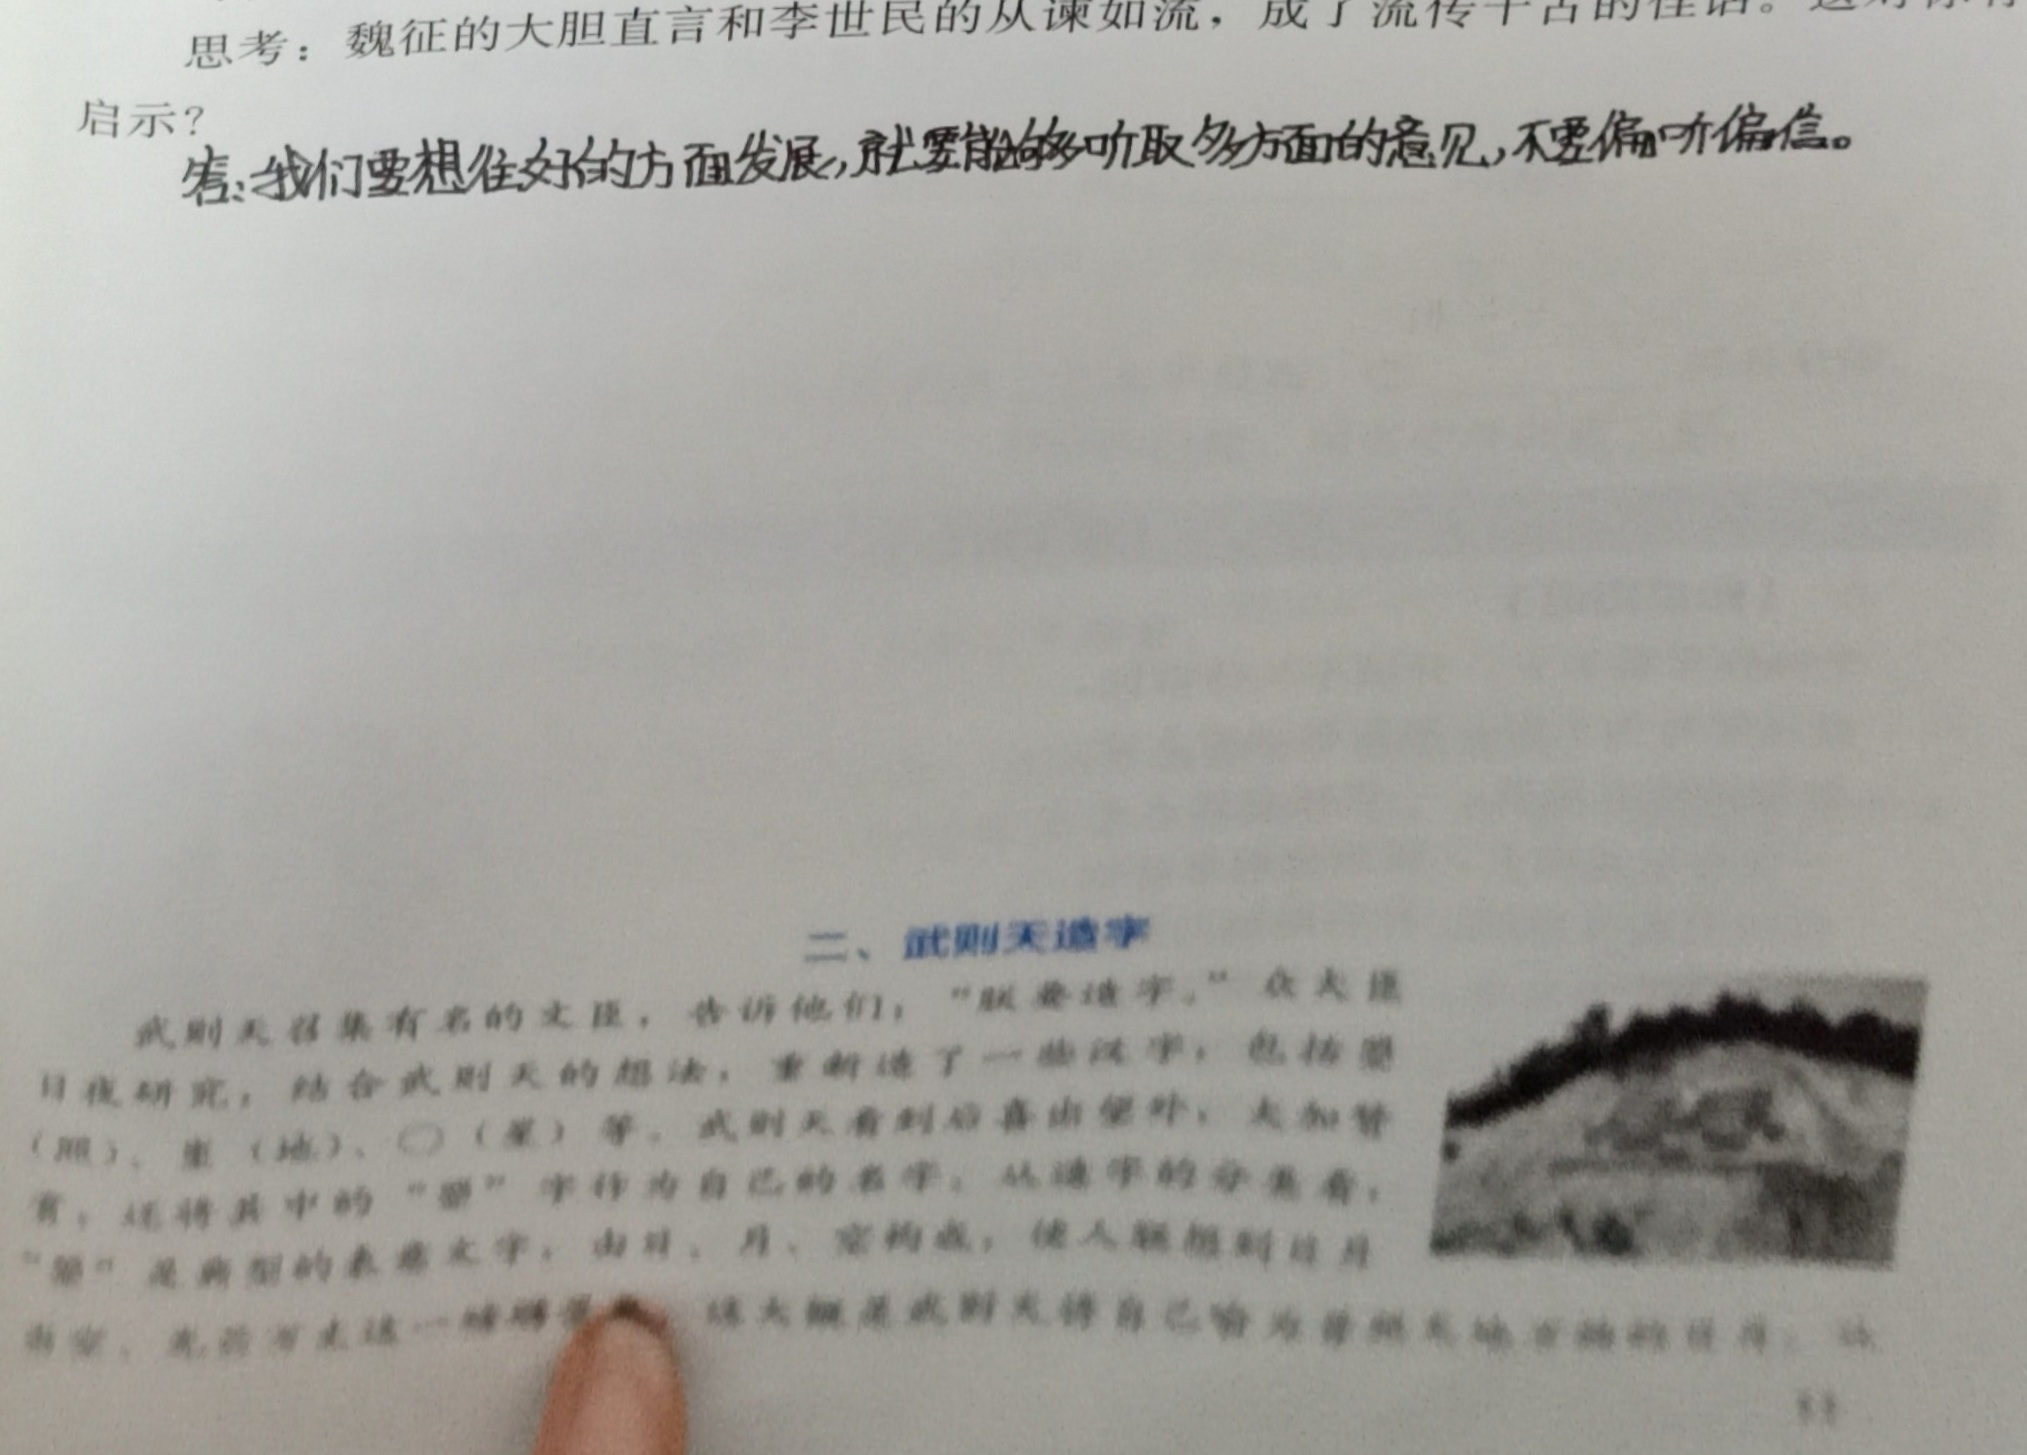 思考：魏征的大胆直言和李世民的从谏如流，成了流传千古的佳话。这对你有
启示？
答：我们要想往好的方面发展，就要能够多听取多方面的意见，不要偏听偏信。
二、武则天造字
武则天召集有名的文臣，告诉他们：“朕要造字。”众大臣
日夜研究，结合武则天的想法，重新造了一些汉字，包括曌
（照）、埊（地）、〇（星）等。武则天看到后喜出望外，大加赞
赏，还将其中的“曌”字作为自己的名字。从造字的分类看，
“曌”是典型的表意文字，由日、月、空构成，使人联想到日月
当空、光芒万丈这一 这大概是武则天将自己喻为普照天地万物的日月，